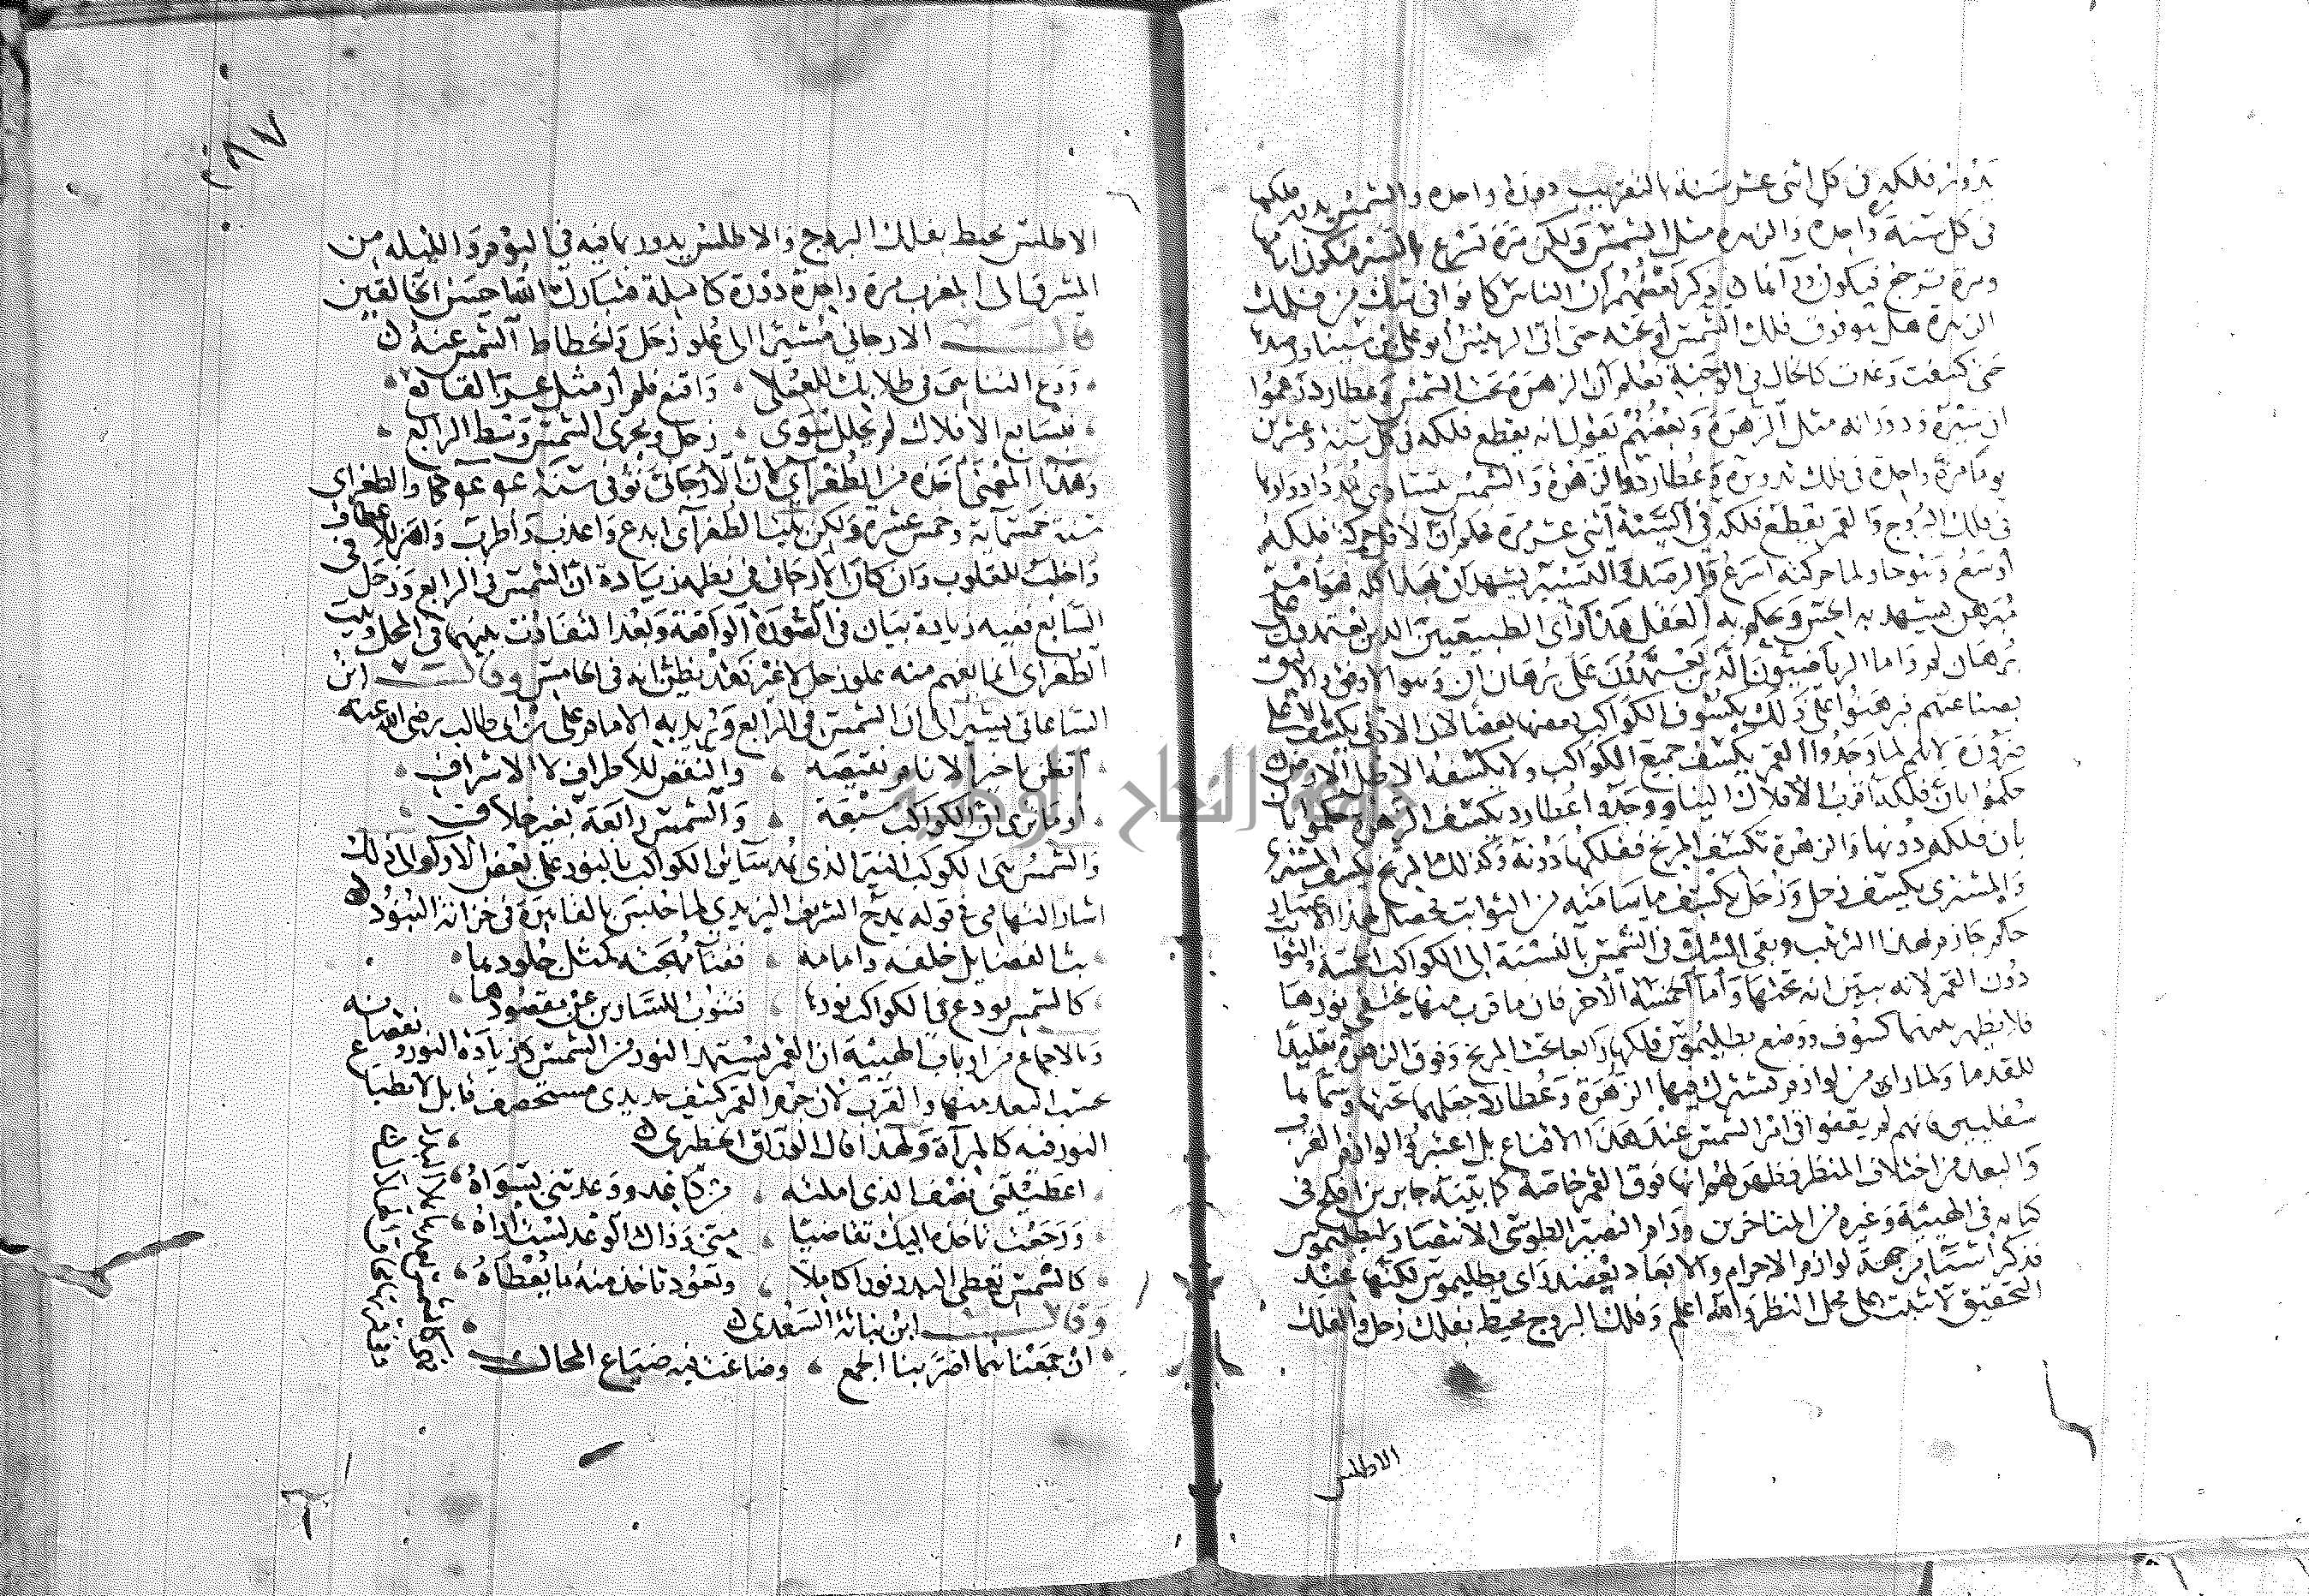 يدور فلكه في كل اثنى عشر سنة بالتقريب دورة واحدة والشمس يدور فلكها
في كل سنة واحدة والزهره مثل الشمس ولكن مرة تسرع السير فتكون امامها
ومرة ترجع فتكون وراها ذكر بعضهم أن الناس كانوا في شك من فلك
الزهرة هل هو فوق فلك الشمس أو تحته حتى اتى الرئيس أبو علي بن سينا ورصدها
حتى كسفت وغدت كالخال في الوجنة فعلم أن الزهرة تحت الشمس وعطارد زعموا
ان سيره ودورانه مثل الزهرة وبعضهم يقول انه يقطع فلكه في كل سنة وعشرين
يوما مرة واحدة في فلك تدويره وعطارد والزهرة والشمس تتساوى مدد ادوارها
في فلك البروج والقمر يقطع فلكه في السنة اثنى عشر مرة
أوسع وهو حاو لما حركته اسرع والرصد في التسيير يشهد أن هذا كله فهو امر
مبرهن يشهد به الحس ويحكم به العقل هذا رأى الطبيعيين الذين يعتمدون على
برهان لم واما الرياضيون الذين يعتمدون على برهان ان وهو الاوفق والاليق
بصناعتهم فبرهنوا على ذلك بكسوف الكواكب بعضها بعضا لان الادنى يكسف الاعلى
ضرورة لانهم لما وجدوا القمر يكسف جميع الكواكب ولا يكسفه الا ظل الارض
حكموا بان فلكه أقرب الافلاك الينا ووجدوا عطارد يكسف الزهرة فحكموا
بان فلكه دونها والزهرة تكسف المريخ ففلكها دونه وكذلك المريخ يكسف المشترى
والمشترى يكسف زحل وزحل يكسف ما يسامته من الثوابت فحصل بهذا الاعتبار
حكم جازم لهذا الترتيب وبقى الشك في الشمس بالنسبة الى الكواكب الخمسة والثوابت
دون القمر لانه يبين انه تحتها وأما الخمسة الأخر فان ما قرب منها يختفي نورها
فلا يظهر بينهما كسوف ووضع بطليموس فلكها رابعا تحت المريخ وفوق الزهرة تقليدا
للقدما ولما رأى من لوازم تشترك فيها الزهرة وعطارد جعلهما تحتها وسماهما
سفليين ثم انهم لم يقفوا في أمر الشمس عند هذا الاقناع بل اعتبروا لوازم القرب
والبعد من اختلاف المنظر فظهر لهم انها فوق القمر خاصة كما بينه جابر بن افلح في
كتابه في الهيئة وغيره من المتأخرين ورام النصير الطوسي الانتصار لبطليموس
فذكر اشيا من جهة لوازم الاجرام والابعاد يعضد رأى بطليموس لكنها عند
التحقيق لا تثبت على محل النظر والله اعلم وفلك البروج محيط بفلك زحل والفلك
الاطلس
٢٨٧
الاطلس محيط بفلك البروج والاطلس يدور بما فيه في اليوم والليله من
المشرق الى المغرب مرة واحدة دورة كاملة فتبارك الله احسن الخالقين
قال الارجاني مشيرا الى علو زحل وانحطاط الشمس عنه
ودع التناهى في طلابك للعلى واقنع فلم أر مثل عز القانع
فبسابع الافلاك لم يحلل سوى زحل ومجرى الشمس وسط الرابع
وهذا المعنى أخذه من الطغرآى لان الأرجاني توفى سنة والطغراى
سنة خمسماية وخمس عشرة ولكن بيت الطغرآى ابدع واعذب وأطرب واهز للاعطاف
واخلب للقلوب وان كان الأرجاني في نظمه زيادة ان الشمس في الرابع وزحل في
السابع ففيه زيادة بيان في الصورة الواقعة وبعد التفاوت بينهما في المحل وبيت
الطغراى انما يفهم منه علو زحل لا غير فقد يظن انه في الخامس وقال ابن
الساعاتي يشير الى ان الشمس في الرابع ويريد به الامام على بن ابى طالب رضي الله عنه
أيظن تاخر الانام نقيصه والنقص للأطراف لا الاشراف
أوما ترى ان الكواكب سبعة والشمس رابعة بغير خلاف
والشمس هى الكوكب النير الذى يمد سائر الكواكب بالنور على بعض الأقوال والى ذلك
اشار التهامي في قوله يمدح الشريف الزيدي لما حبس بالقاهرة في خزانة البنود
بث الفضايل خلفه وامامه ففنآ مهجته كمثل خلودها
كالشمس يودع في الكواكب نورها فتنوب للسارين عن مقصودها
وبالاجماع من ارباب الهيئة ان القمر يستمد النور من الشمس وزيادة النور ونقصانه
عند البعد منها والقرب لان جرم القمر كثيف حديدى مستحصف قابل لانطباع
النور فيه كالمرآة ولهذا قال الوراق الحظيرى
اعطيتني نصف الذى املته كرما غدا ووعدتني بسواه
ورجعت تاخذه اليك تقاضيا منى وذاك الوعد لست اراه
كالشمس تعطى البدر نورا كاملا وتعود تاخذ منه ما يعطاه
وقال ابن نباتة السعدى
ان جمعنا نهما اضر بنا الجمع وضاعت فيه ضياع المحال